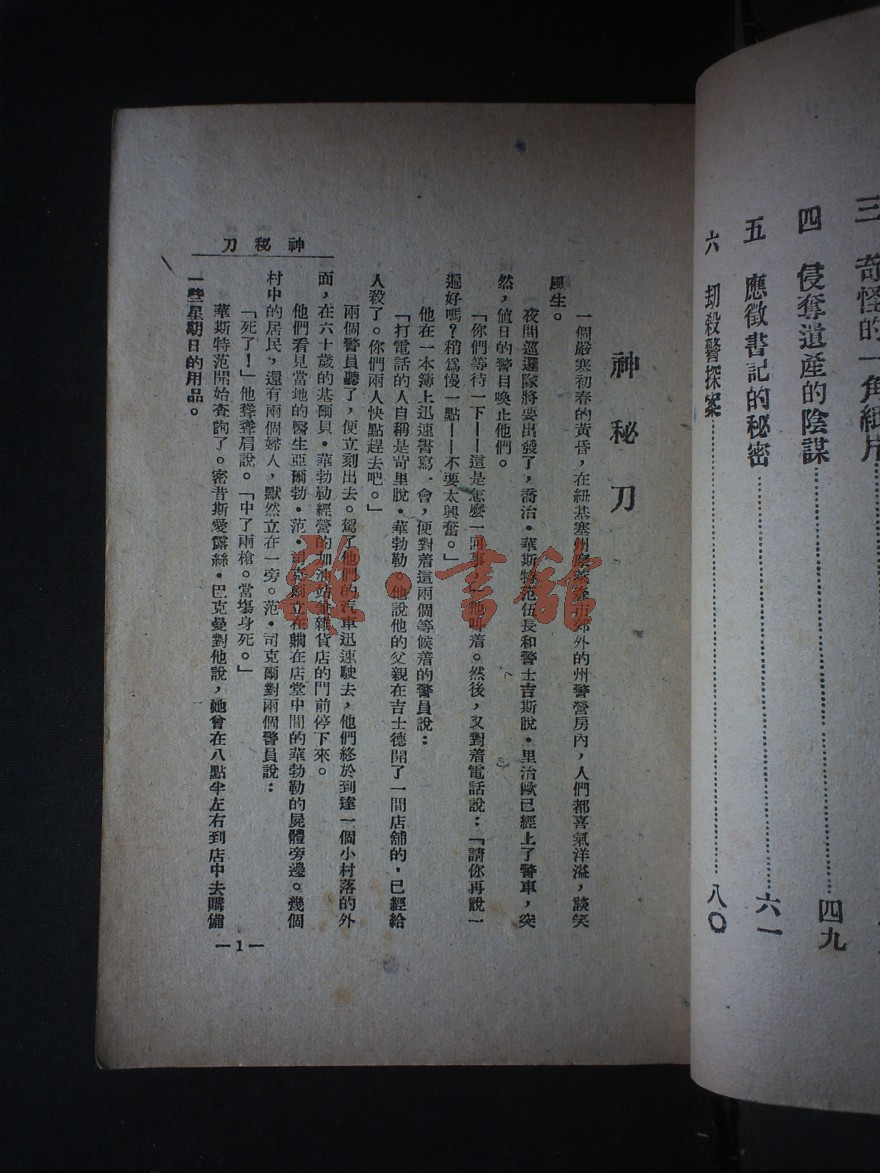 三 奇怪的一角紙片
四 侵奪遺產的陰謀 四九
五 應徵書記的秘密 六一
六 刧殺警探案 八〇
神秘刀
神秘刀
一個嚴寒初春的黃昏，在紐基塞州 市郊外的州警營房內，人們都喜氣洋溢，談笑
風生。
夜間巡邏隊將要出發了，喬治·華斯特范伍長和警士吉斯脫·里治歐已經上了警車，突
然，値日的警目喚止他們。
「你們等待一下——這是怎麼一回事」他叫着。然後，又對着電話說：「請你再說一
遍好嗎？稍爲慢一點——不要太興奮。」
他在一本簿上迅速書寫一會，便對着這兩個等候着的警員說：
「打電話的人自稱是哥里脫·華勃勒。他說他的父親在吉士德開了一間店舖的，已經給
人殺了。你們兩人快點趕去吧。」
兩個警員聽了，便立刻出去。駕了他們的汽車迅速駛去，他們終於到達一個小村落的外
面，在六十歲的基爾貝·華勃勒經營的加油站 雜貨店的門前停下來。
他們看見當地的醫生亞爾勃·范·司克爾立在躺在店堂中間的華勃勒的屍體旁邊。幾個
村中的居民，還有兩個婦人，默然立在一旁。范·司克爾對兩個警員說：
「死了！」他聳聳肩說。「中了兩槍。當塲身死。」
華斯特范開始查詢了。密昔斯愛露絲·巴克曼對他說，她曾在八點半左右到店中去購備
一些星期日的用品。
—1—
雜·書館